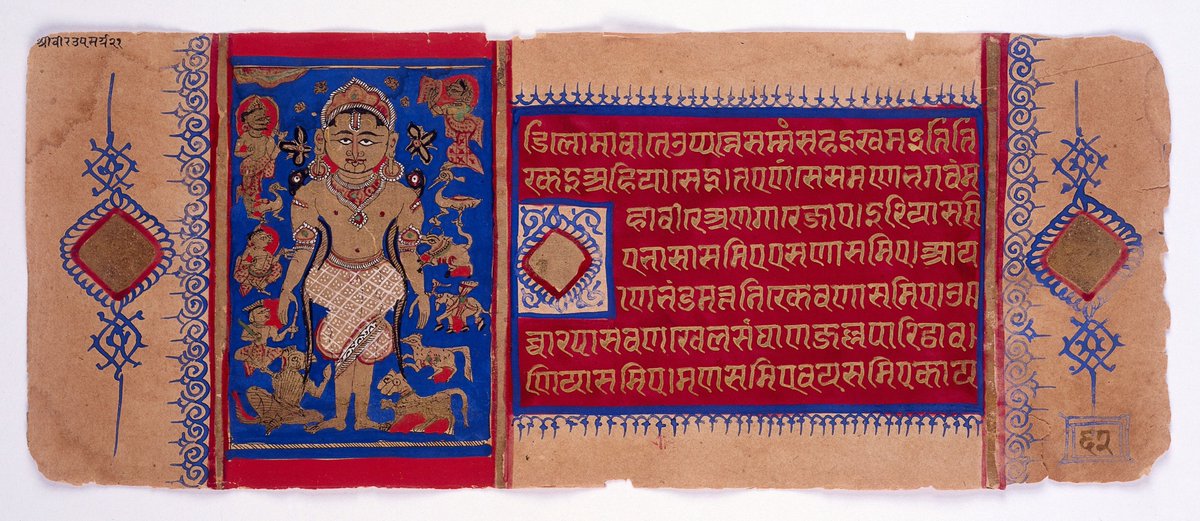 श्रीवीरउपसर्ग२१
डिलोमावातेउप्पन्नेसम्मंसहइखमइतिति
रकइअहियासेइ।तएणंसेसमणेभगवंम
हावीरेअणगारेजाए।इरियासमि
एभासासमिएएसणासमिए।आया
णभंडमत्तनिरकेवणासमिए।उ
च्चारपासवणखेलसंघाणजल्लपारिठाव
णियासमिए।मणसमिएवयसमिएकाय
६२